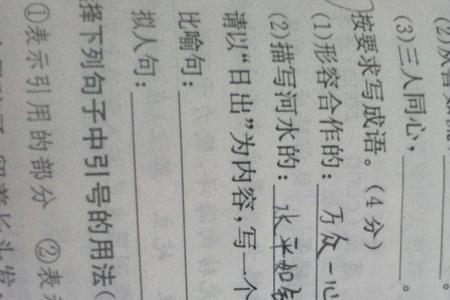 (3)三人同心,
按要求写成语。(4分)
(1)形容合作的:万众一心
(2)描写河水的:水平如镜
请以“日出”为内容,写一个
比喻句:
拟人句:
择下列句子中引号的用法(
①表示引用的部分 ②表